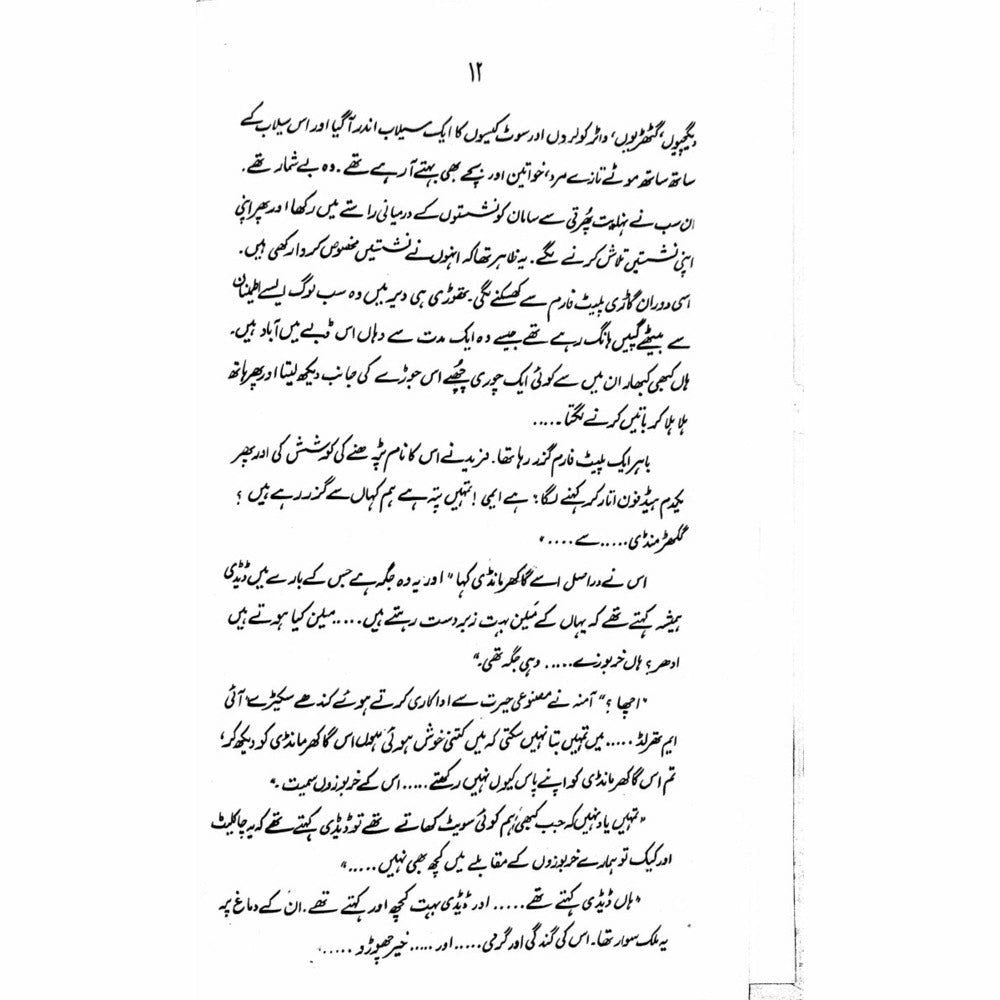 ۱۲
دیگچیوں، گٹھڑیوں، واٹر کولروں اور سوٹ کیسوں کا ایک سیلاب اندر آ گیا اور اس سیلاب کے
ساتھ ساتھ موٹے تازے مرد، خواتین اور بچے بھی بہتے آ رہے تھے۔ وہ بے شمار تھے۔
ان سب نے نہایت پھُرتی سے سامان کو نشستوں کے درمیانی راستے میں رکھا اور پھر اپنی
اپنی نشستیں تلاش کرنے لگے۔ یہ ظاہر تھا کہ انہوں نے نشستیں مخصوص کروا رکھی ہیں۔
اسی دوران گاڑی پلیٹ فارم سے کھسکنے لگی۔ تھوڑی ہی دیر میں وہ سب لوگ ایسے اطمینان
سے بیٹھے گپیں ہانک رہے تھے جیسے وہ ایک مدت سے وہاں اس ڈبے میں آباد ہیں۔
ہاں کبھی کبھار ان میں سے کوئی ایک چوری چھُپے اس جوڑے کی جانب دیکھ لیتا اور پھر ہاتھ
ہلا ہلا کر باتیں کرنے لگتا۔....
باہر ایک پلیٹ فارم گزر رہا تھا۔ مزید نے اس کا نام پڑھنے کی کوشش کی اور پھر
یکدم ہیڈ فون اتار کر کہنے لگا، "ہے ایمی! تمہیں پتہ ہے ہم کہاں سے گزر رہے ہیں؟
گکھڑ منڈی..... سے ...."
اس نے دراصل اسے گاکھر مانڈی کہا "اور یہ وہ جگہ ہے جس کے بارے میں ڈیڈی
ہمیشہ کہتے تھے کہ یہاں کے مَیلن بہت زبردست رہتے ہیں..... میلن کیا ہوتے ہیں
ادھر؟ ہاں خربوزے..... وہی جگہ تھی۔"
"اچھا؟" آمنہ نے مصنوعی حیرت سے اداکاری کرتے ہوئے کندھے سکیڑے "آئی
ایم تھرلڈ..... میں تمہیں بتا نہیں سکتی کہ میں کتنی خوش ہوئی ہوں اس گاکھر مانڈی کو دیکھ کر،
تم اس گاکھر مانڈی کو اپنے پاس کیوں نہیں رکھتے..... اس کے خربوزوں سمیت۔"
"تمہیں یاد نہیں کہ جب کبھی ہم کوئی سویٹ کھاتے تھے تو ڈیڈی کہتے تھے کہ یہ چاکلیٹ
اور کیک تو ہمارے خربوزوں کے مقابلے میں کچھ بھی نہیں....."
"ہاں ڈیڈی کہتے تھے..... اور ڈیڈی بہت کچھ اور کہتے تھے۔ ان کے دماغ پر
یہ ملک سوار تھا۔ اس کی گندگی اور گرمی..... اور ..... خیر چھوڑو .....